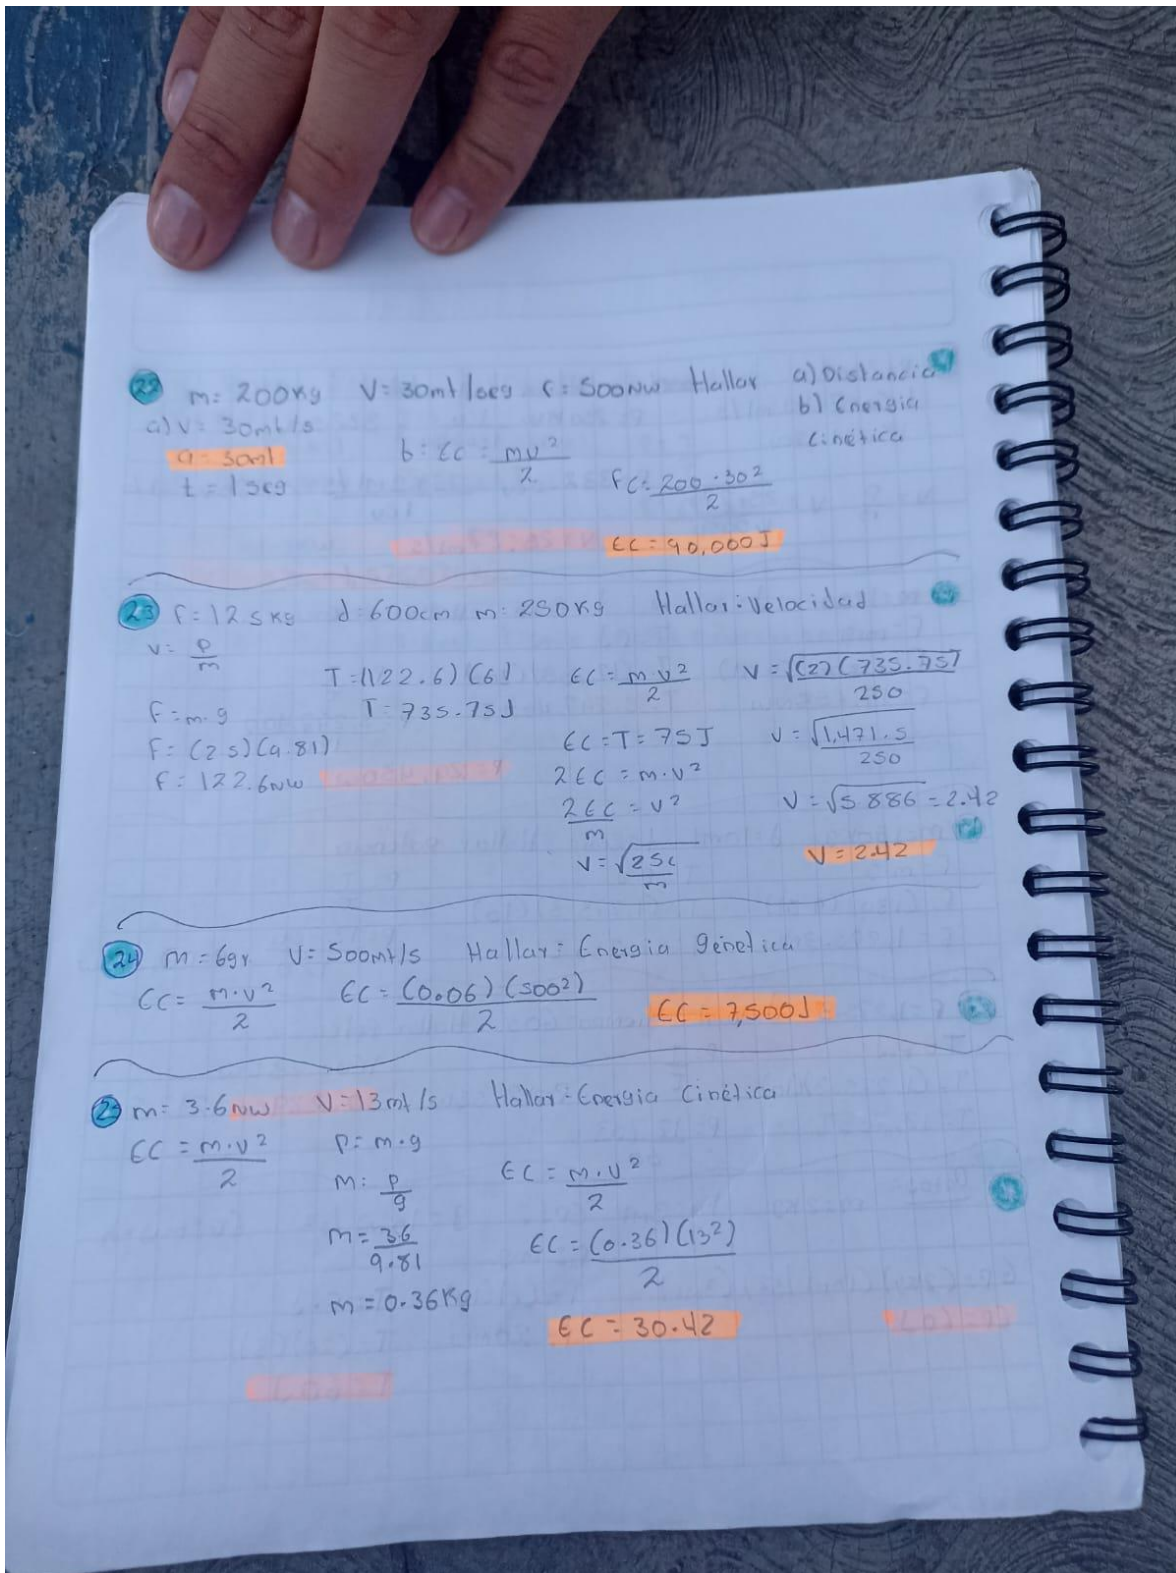 22 m= 200Kg V=30mt/seg F=500Nw Hallar a) Distancia
b) Energia
Cinética
a) V= 30mt/s
d=30mt
t=1seg
b= EC = mv²/2
EC= 200·30²/2
EC=90,000J
23 F=12.5Kg d=600cm m=250Kg Hallar: Velocidad
V= P/m
F=m·g
F=(2.5)(9.81)
F=122.6Nw
T=(122.6)(6)
T=735.75J
EC= m·v²/2
EC=T=75J
2EC=m·v²
2EC/m = v²
V=√2Sc/m
V=√(2)(735.75)/250
V=√1,471.5/250
V=√5886=2.42
V=2.42
24 m=6gr V=500mt/s Hallar= Energia Génetica
EC= m·v²/2 EC= (0.06)(500²)/2 EC=7,500J
m= 3.6Nw V=13mt/s Hallar: Energia Cinética
EC= m·v²/2
P=m·g
m: P/g
m= 3.6/9.81
m=0.36Kg
EC= m·v²/2
EC= (0.36)(13²)/2
EC=30.42